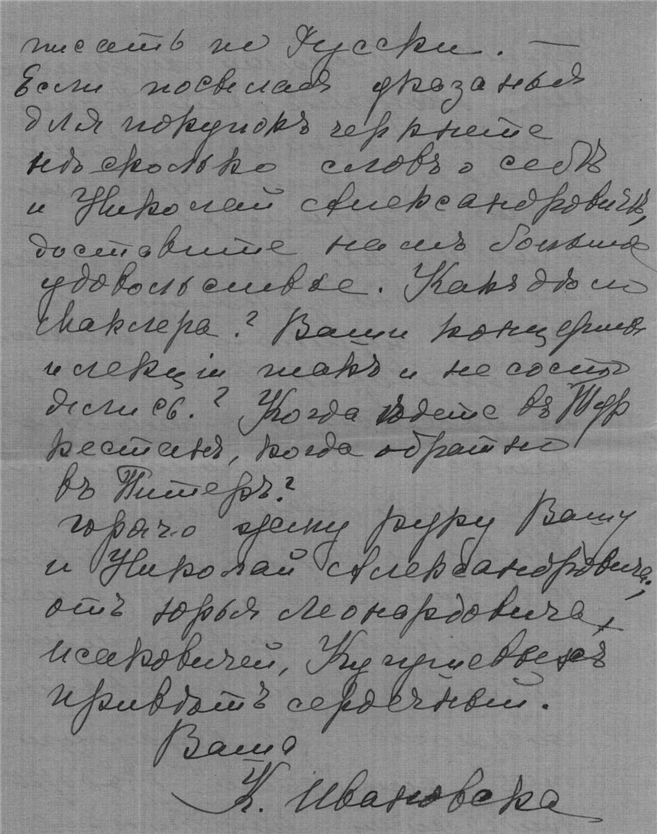 писать по Русски. —
Если посылая указанья
для покупокъ черкнете
нѣсколько словъ о себѣ
и Николай Александровичѣ,
доставите намъ большое
удовольсивіе. Какъ дѣло
Маклера? Ваши концерты
и лекціи такъ и не состоя
лись.? Когда ѣдете въ Тур
кестанъ, когда обратно
въ Питеръ?
горячо жму руку Вашу
и Николай Александровича,
отъ Юрья Леонардовича,
Исаковичей, Кугушевыхъ
привѣтъ сердечный.
Ваша
К. Ивановска